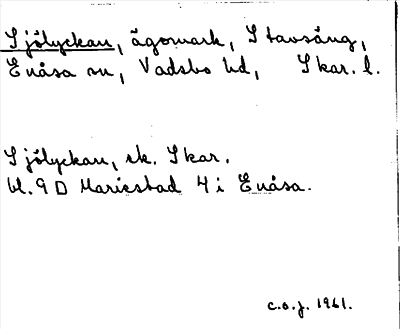 Sjölyckan, ägomark, Stavsäng,
Enåsa sn, Vadsbo hd, Skar. l.
Sjölyckan, ek. Skar.
bl. 9 D Mariestad 4 i Enåsa.
c.o.j. 1961.